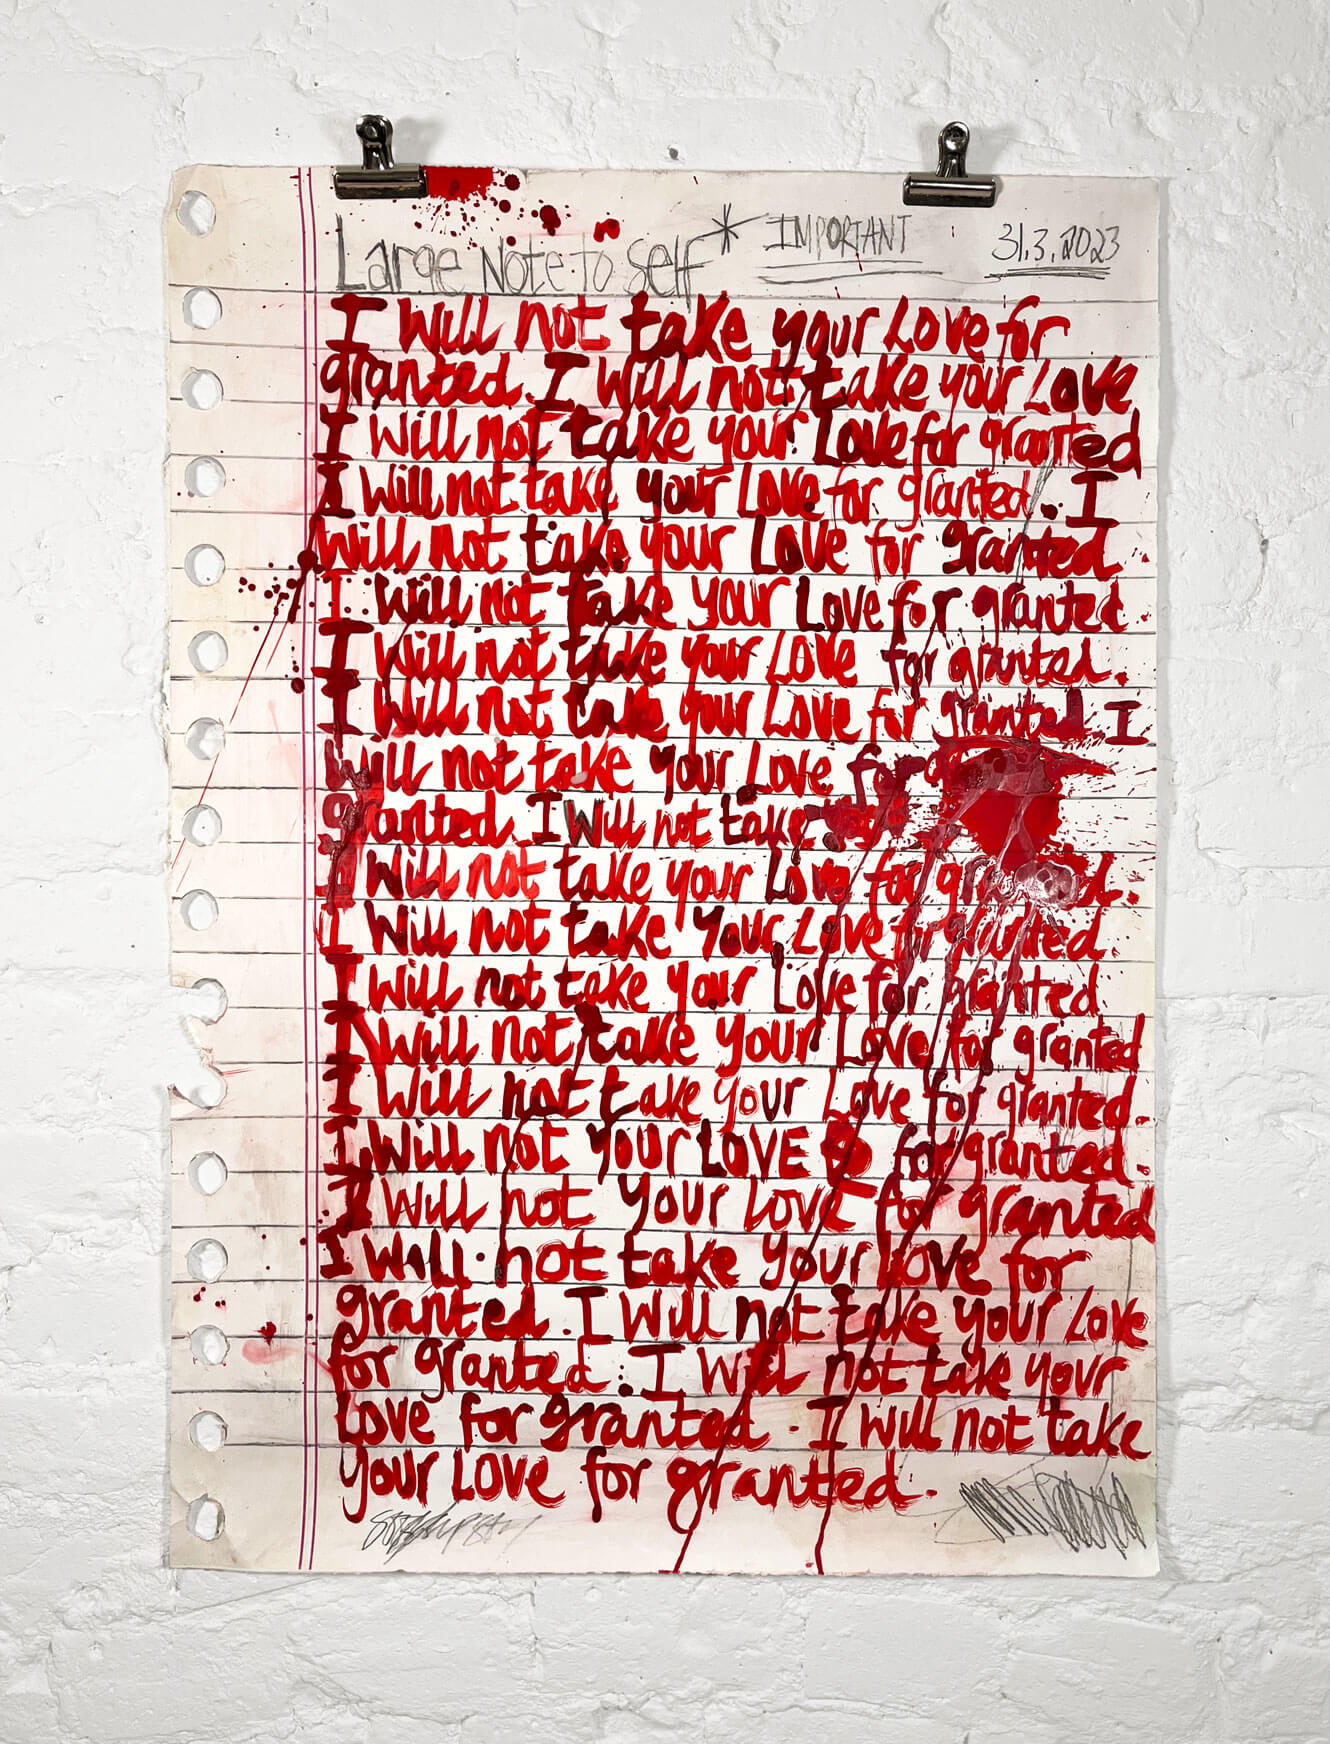 Large Note to Self* IMPORTANT 31.3.2023
I will not take your Love for
granted. I will not take your Love
I will not take your Love for granted
I will not take your Love for granted. I
will not take your Love for granted.
I will not take your Love for granted.
I will not take your Love for granted.
I will not take your Love for granted I
will not take your Love for
granted. I will not take
I will not take your Love for granted.
I will not take your Love for granted.
I will not take your Love for granted
I will not take your Love for granted
I will not take your Love for granted.
I will not your LOVE for granted.
I will not your Love for granted
I WILL not take your Love for
granted. I will not take your Love
for granted. I will not take your
Love for granted. I will not take
your Love for granted.